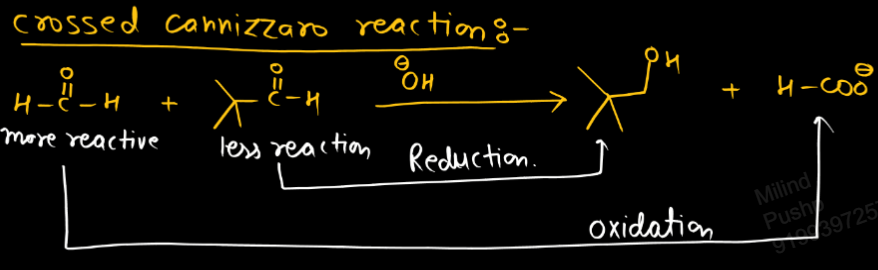 crossed cannizzaro reaction:-
H-C-H + C-H ⊖OH OH + H-COO⊖
O O
more reactive less reaction Reduction.
oxidation
Milind
Pushp